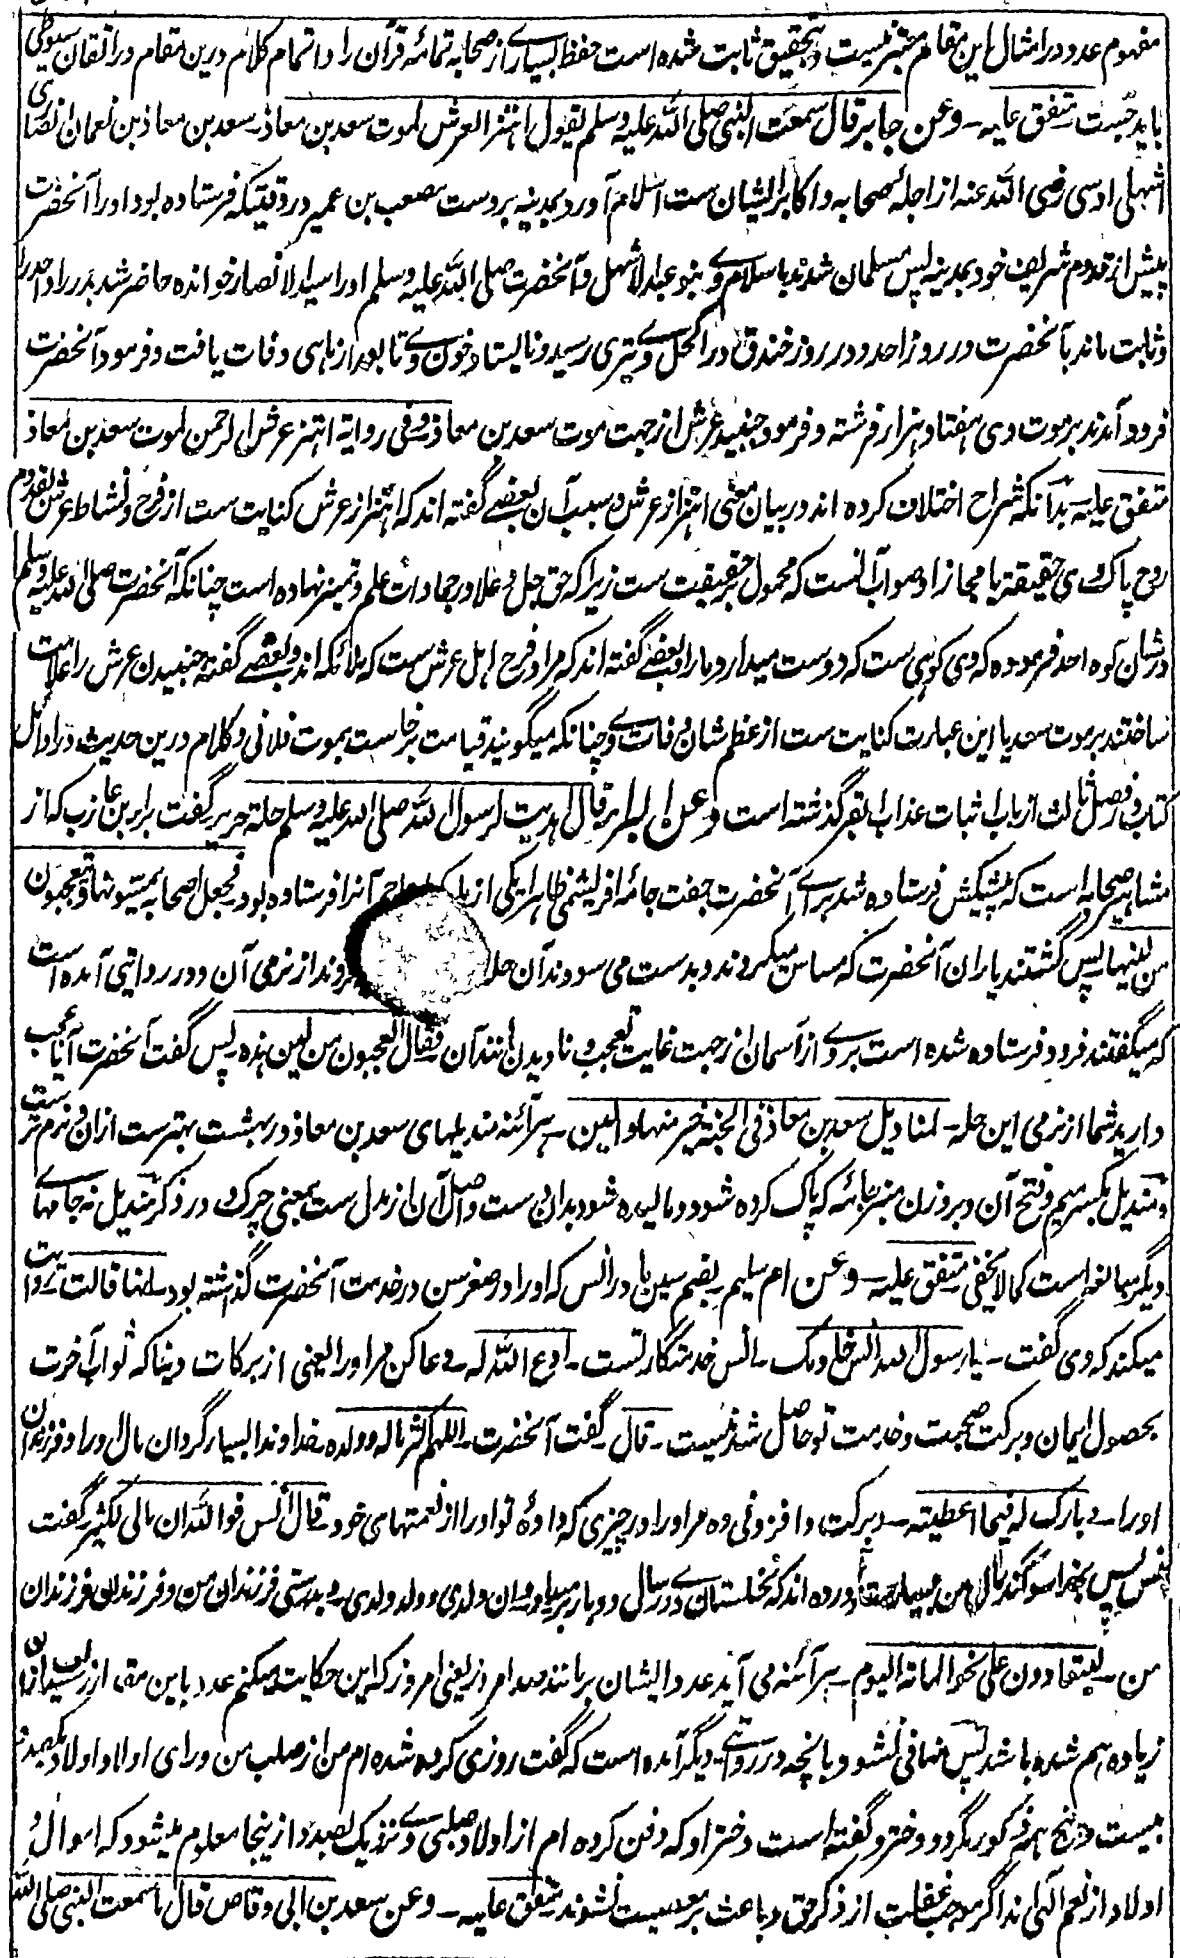 مفهوم عدد در امثال این مقام معتبر نیست و بتحقیق ثابت شده است حفظ بسیاری از صحابه تمامهٔ قرآن را و اتمام کلام درین مقام در اتقان سیوطی
باید جست متفق علیه ـ وعن جابر قال سمعت النبی صلی الله علیه وسلم یقول اهتز العرش لموت سعد بن معاذ ـ سعد بن معاذ بن نعمان انصاری
اشهلی اوسی رضی الله عنه از اجلهٔ صحابه و اکابر ایشان ست اسلام آورد بمدینه بر دست مصعب بن عمیر در وقتیکه فرستاده بود او را آنحضرت
پیش از قدوم شریف خود بمدینه پس مسلمان شدند باسلام وے بنو عبد الاشهل و آنحضرت صلی الله علیه وسلم او را سید الانصار خوانده حاضر شد بدر را و احد را
و ثابت ماند با آنحضرت در روز احد و در روز خندق در اکحل وے تیری رسید و نایستاد خون وے تا بعد از ماهی وفات یافت و فرمود آنحضرت
فرود آمدند بر موت وی هفتاد هزار فرشته و فرمود جنبید عرش از جهت موت سعد بن معاذ ـ وفی روایة اهتز عرش الرحمن لموت سعد بن معاذ
متفق علیه ـ بدانکه شراح اختلاف کرده اند در بیان معنی اهتزاز عرش و سبب آن بعضے گفته اند که اهتزاز عرش کنایت ست از فرح و نشاط عرش بقدوم
روح پاک وی حقیقة یا مجازا و صواب آنست که محمول بر حقیقت ست زیرا که حق جل و علا در جمادات علم و تمیز نهاده است چنانکه آنحضرت صلی الله علیه وسلم
در شان کوه احد فرموده که وی کوهی ست که دوست میدارد ما را و بعضے گفته اند که مراد فرح اهل عرش ست که ملائکه اند و بعضے گفته جنبیدن عرش را علامت
ساختند بر موت سعد یا این عبارت کنایت ست از عظم شان وفات وے چنانکه میگویند قیامت برخاست بموت فلانی و کلام درین حدیث در اوائل
کتاب در فصل ثالث از باب اثبات عذاب القبر گذشته است وعن البراء قال اهدیت لرسول الله صلی الله علیه وسلم حلة حریر ـ گفت براء بن عازب که از
مشاهیر صحابه است که پیشکش فرستاده شد برای آنحضرت جفت جامهٔ ابریشمی ظاهرا یکی از آنرا فرستاده بود ـ فجعل اصحابه یمسونها ویتعجبون
من لینها ـ پس گشتند یاران آنحضرت که مساس میکردند و بدست می سودند آن حله از نرمی آن و در روایتی آمده است
که میگفتند فرود فرستاده شده است بر وے از آسمان از جهت غایت تعجب و نادیدن مانند آن ـ فقال اتعجبون من لین هذه ـ پس گفت آنحضرت آیا عجب
دارید شما از نرمی این حله ـ لمنادیل سعد بن معاذ فی الجنة خیر منها والین ـ هر آئنه مندیلهای سعد بن معاذ در بهشت بهترست ازان و نرم تر ست
و مندیل بکسر میم و فتح آن و بر وزن منبر جامه که پاک کرده شود و مالیده شود بدان دست و اصل آن از ندل ست بمعنی چرک و در ذکر مندیل نه جامهاے
دیگر مبالغه است کما لا یخفی متفق علیه ـ وعن ام سلیم ـ بضم سین مادر انس که او را در صغر سن در خدمت آنحضرت گذاشته بود ـ انها قالت ـ روایت
میکند که وی گفت ـ یا رسول الله انس خادمک ـ انس خدمتگار تست ـ ادع الله له ـ دعا کن مر او را یعنی از برکات دنیا که ثواب آخرت
بحصول ایمان و برکت صحبت و خدمت تو حاصل شدنیست ـ قال ـ گفت آنحضرت ـ اللهم اکثر ماله وولده ـ خداوندا بسیار گردان مال او را و فرزندان
او را ـ وبارک له فیما اعطیته ـ و برکت و افزونی ده مر او را در چیزی که دادهٔ تو او را از نعمتهای خود ـ قال انس فوالله ان مالی لکثیر ـ گفت
انس پس بخدا سوگند مال من بسیار ست آورده اند که نخلستان وے در سال دو بار میوه وان ولدی وولد ولدی ـ و بدرستی فرزندان من و فرزندان فرزندان
من ـ لیتعادون علی نحو المائة الیوم ـ هر آئنه می آید عدد ایشان بر مانند صد امروز یعنی امروز که این حکایت میکنم عدد باین مقدار رسید
زیاده هم شده باشد پس منافی نشود بآنچه در روایتے دیگر آمده است که گفت روزی کرده شده ام من از صلب من ورای اولاد اولاد یکصد و
بیست و پنج همه ذکور مگر دو دختر و گفته است دختر او که دفن کرده ام از اولاد صلبی وے نزدیک بصد و ازینجا معلوم میشود که اموال و
اولاد از نعم الهی اند اگر موجب غفلت از ذکر حق و باعث بر معصیت نشوند متفق علیه ـ وعن سعد بن ابی وقاص قال ما سمعت النبی صلی الله